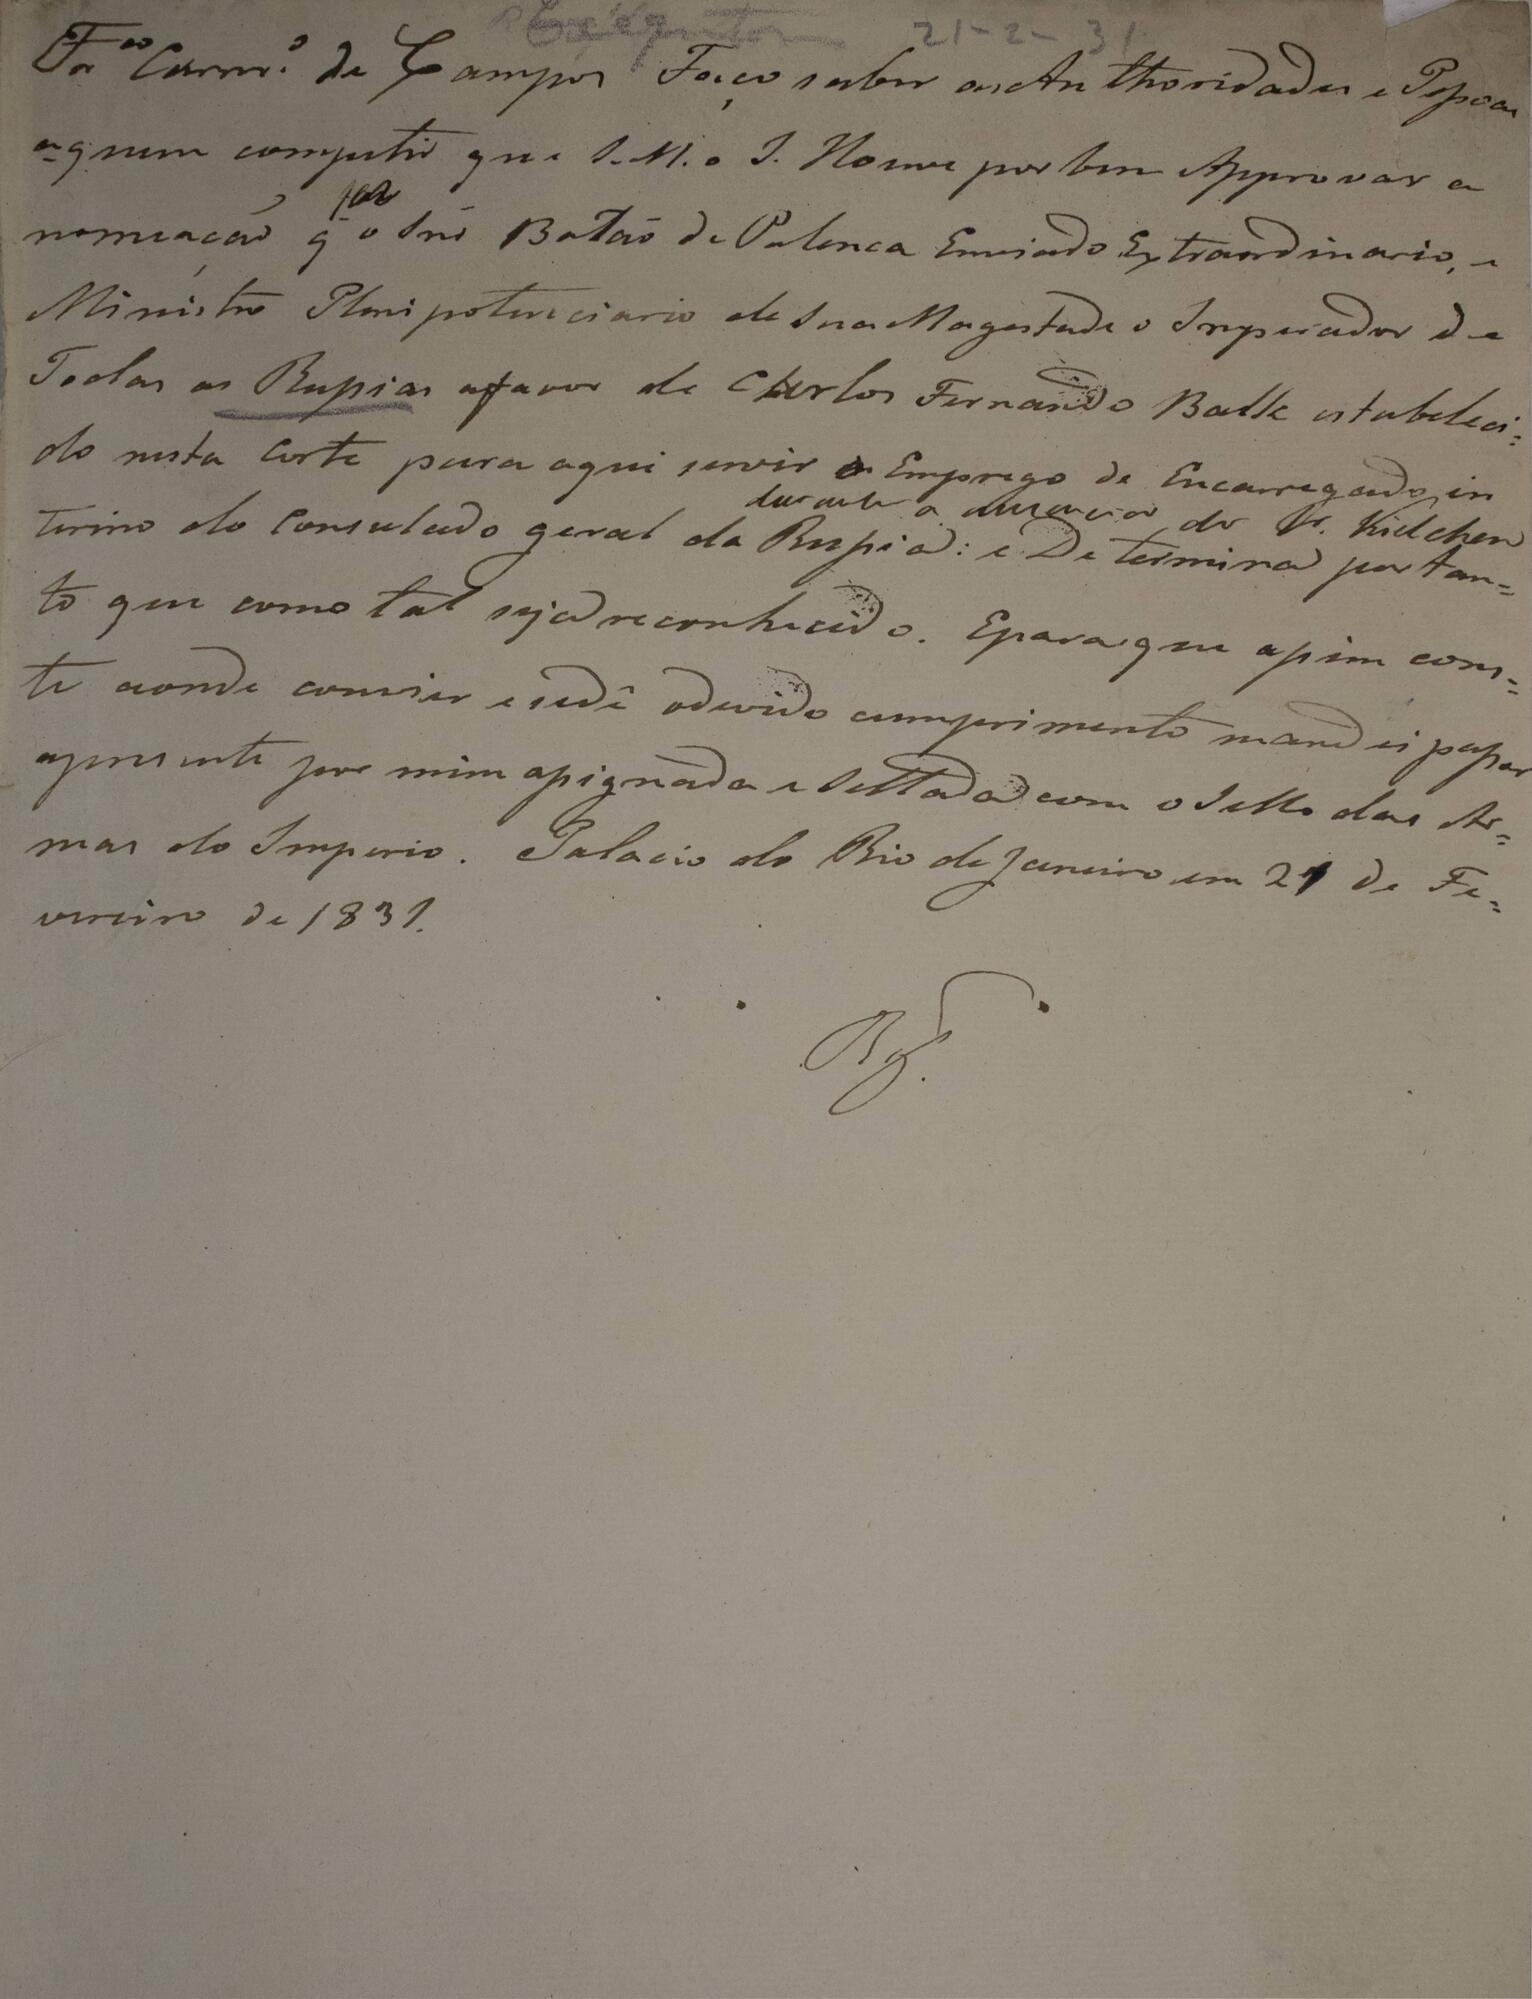 Exequatur 21-2-31
Fr.co Carnr.o de Campos Faço saber as Authoridades e Pessoas
a quem competir que S.M.o I. Houve por bem Approvar a
nomeação q̃ fez o Snr̃ Batão de Palença Enviado Extraordinario, e
Ministro Plenipotenciario de Sua Magestade o Imperador de
Todas as Russias a favor de Carlos Fernando Balk estabeleci=
do nesta Corte para aqui servir o Emprego de Encarregado in
durante a ausencia do Sr. Kielchen
terino do Consulado geral da Russia: e Determina portan=
to que como tal seja reconhecido. E para que assim cons=
te aonde convier e se dê o devido cumprimento mandei passar
a presente por mim assignada e Sellada com o Sello das Ar=
mas do Imperio. Palacio do Rio de Janeiro em 21 de Fe=
vereiro de 1831.